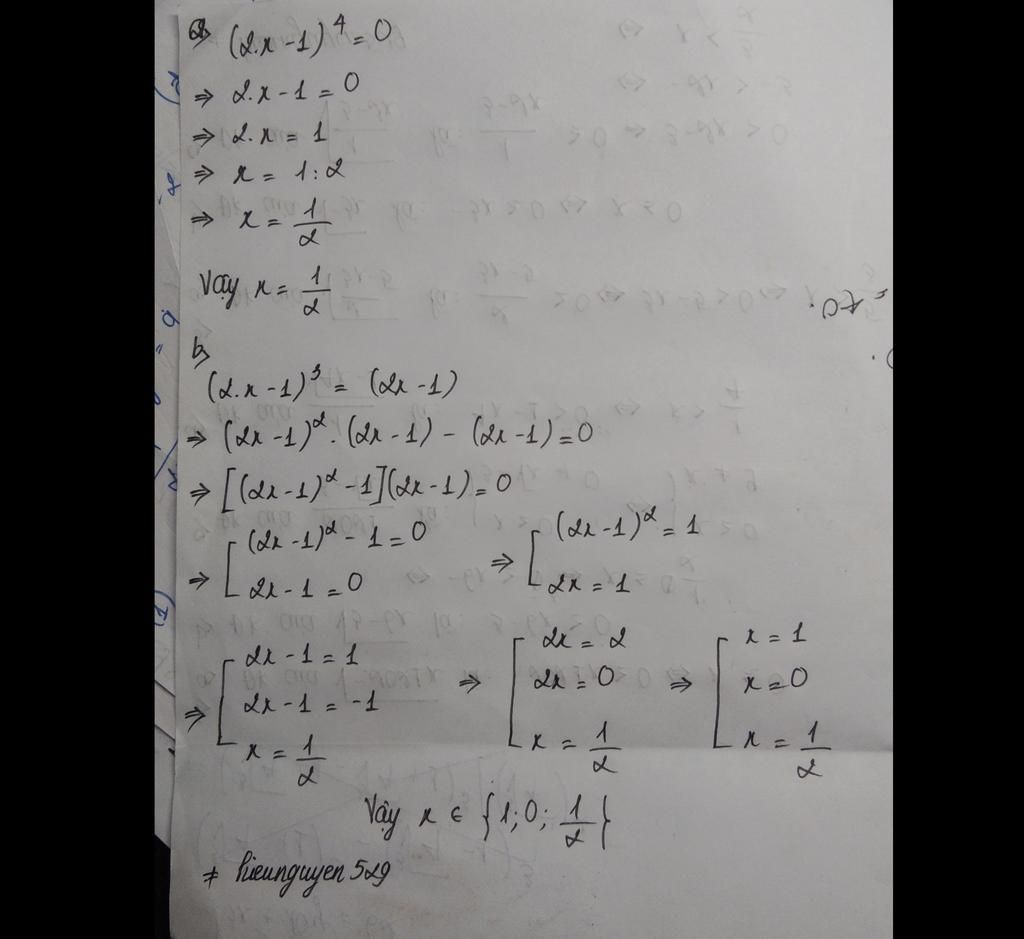 a) (2.x-1)^4 = 0
⇒ 2.x-1 = 0
⇒ 2.x = 1
⇒ x = 1:2
⇒ x = 1/2
Vậy x = 1/2
b)
(2.x-1)^3 = (2x-1)
⇒ (2x-1)^2.(2x-1) - (2x-1) = 0
⇒ [(2x-1)^2-1](2x-1) = 0
⇒ [ (2x-1)^2 - 1 = 0 ⇒ [ (2x-1)^2 = 1
2x-1 = 0 2x = 1
⇒ [ 2x-1 = 1 ⇒ [ 2x = 2 ⇒ [ x = 1
2x-1 = -1 2x = 0 x = 0
x = 1/2 x = 1/2 x = 1/2
Vậy x ∈ {1;0; 1/2}
# hieunguyen 529